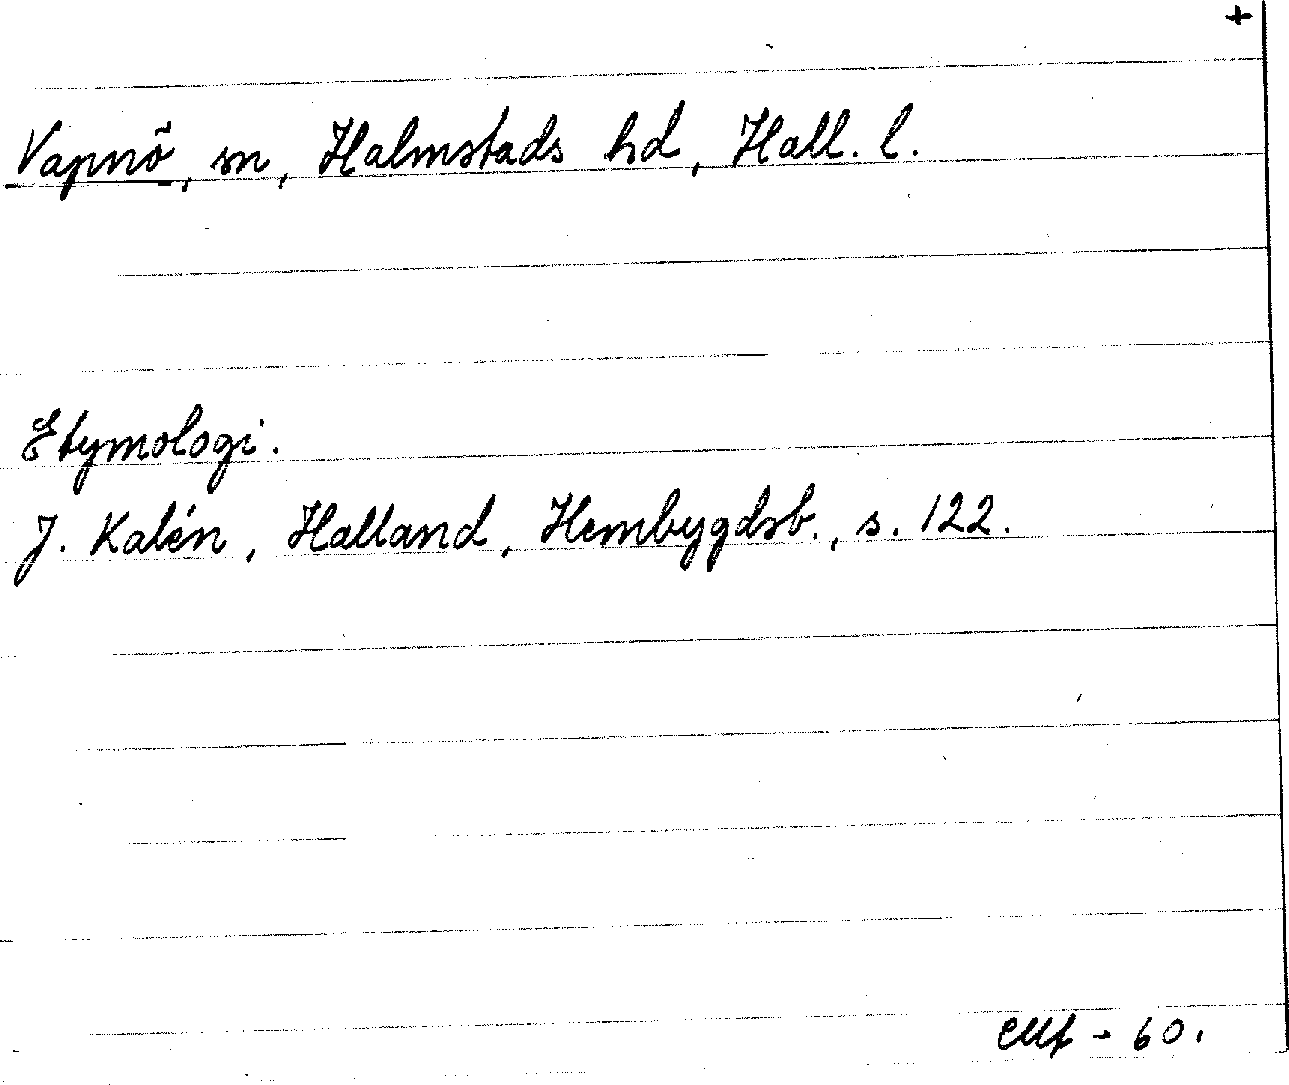 +
Vapnö, sn, Halmstads hd, Hall. l.
Etymologi.
J. Kalén, Halland, Hembygdsb., s. 122.
- 60.